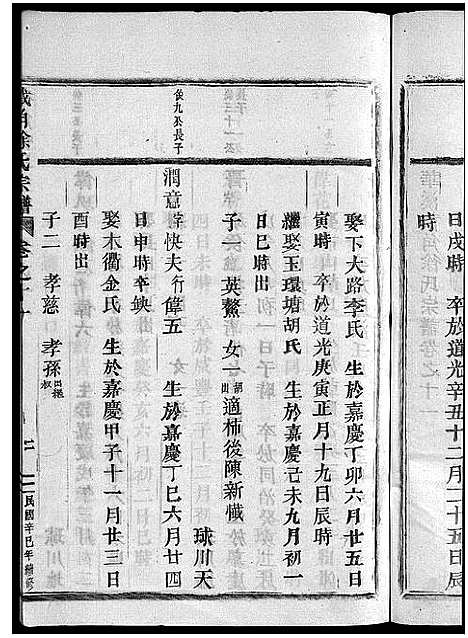 日戌時　卒於道光辛丑十二月二十五日辰
時
娶下大路李氏　生於嘉慶丁卯六月廿五日
寅時　卒於道光庚寅正月十九日辰時
繼娶玉環塘胡氏　生於嘉慶己未九月初一
日巳時出
子一　英鰲　女一胡出適柿後陳新懴
俊九公長子
球川天
潤意字快夫行偉五　生於嘉慶丁巳六月廿四
日申時卒缺
娶木衢金氏　生於嘉慶甲子十一月廿三日
酉時出
子二　孝慈　孝孫出繼
徐氏宗譜　卷之十
民國辛巳年續修